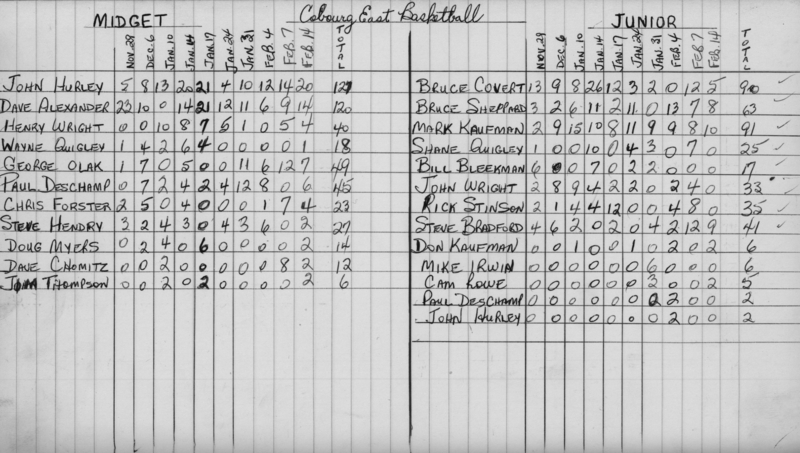 Cobourg East Basketball
MIDGET
NOV. 29 DEC. 6 JAN. 10 JAN. 14 JAN. 17 JAN. 24 JAN. 31 FEB. 4 FEB. 7 FEB. 14 TOTAL
JOHN HURLEY 5 8 13 20 21 4 10 12 14 20 127
DAVE ALEXANDER 23 10 0 14 21 12 11 6 9 14 120
HENRY WRIGHT 0 0 10 8 7 5 1 0 5 4 40
WAYNE QUIGLEY 1 4 2 6 4 0 0 0 0 1 18
GEORGE OLAK 1 7 0 5 0 0 11 6 12 7 49
PAUL DESCHAMP 0 7 2 4 2 4 12 8 0 6 45
CHRIS FORSTER 2 5 0 4 0 0 0 1 7 4 23
STEVE HENDRY 3 2 4 3 0 4 3 6 0 2 27
DOUG MYERS 0 2 4 0 6 0 0 0 0 2 14
DAVE CHOMITZ 0 0 2 0 0 0 0 0 8 2 12
THOMPSON 0 0 2 0 2 0 0 0 0 2 6
JUNIOR
NOV. 29 DEC. 6 JAN. 10 JAN. 14 JAN. 17 JAN. 24 JAN. 31 FEB. 4 FEB. 7 FEB. 14 TOTAL
BRUCE COVERT 13 9 8 26 12 3 2 0 12 5 90
BRUCE SHEPPARD 3 2 6 11 2 11 0 13 7 8 63
MARK KAUFMAN 2 9 15 10 8 11 9 9 8 10 91
SHANE QUIGLEY 1 0 0 10 0 4 3 0 7 0 25
BILL BLEEKMAN 6 0 0 7 0 2 2 0 0 0 17
JOHN WRIGHT 2 8 9 4 2 2 0 2 4 0 33
RICK STINSON 2 1 4 4 12 0 0 4 8 0 35
STEVE BRADFORD 4 6 2 0 2 0 4 2 12 9 41
DON KAUFMAN 0 0 1 0 0 1 0 2 0 2 6
MIKE IRWIN 0 0 0 0 0 0 6 0 0 0 6
CAM LOWE 0 0 0 0 0 0 3 0 0 2 5
PAUL DESCHAMP 0 0 0 0 0 0 2 2 0 0 2
JOHN HURLEY 0 0 0 0 0 0 0 2 0 0 2